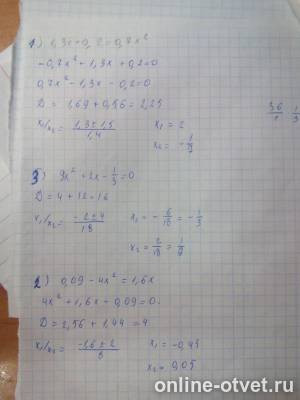 1) 1,3x+0,2=0,7x²
-0,7x²+1,3x+0,2=0
0,7x²-1,3x-0,2=0
D = 1,69+0,56=2,25
x₁/x₂ = 1,3±1,5/1,4 x₁ = 2
x₂ = -1/7
3) 9x²+2x-1/3=0
D = 4+12=16
x₁/x₂ = -2±4/18 x₁ = -6/18 = -1/3
x₂ = 2/18 = 1/9
2) 0,09-4x²=1,6x
4x²+1,6x+0,09=0.
D = 2,56+1,44=4
x₁/x₂ = -1,6±2/8 x₁ = -0,45
x₂ = 0,05
online-otvet.ru